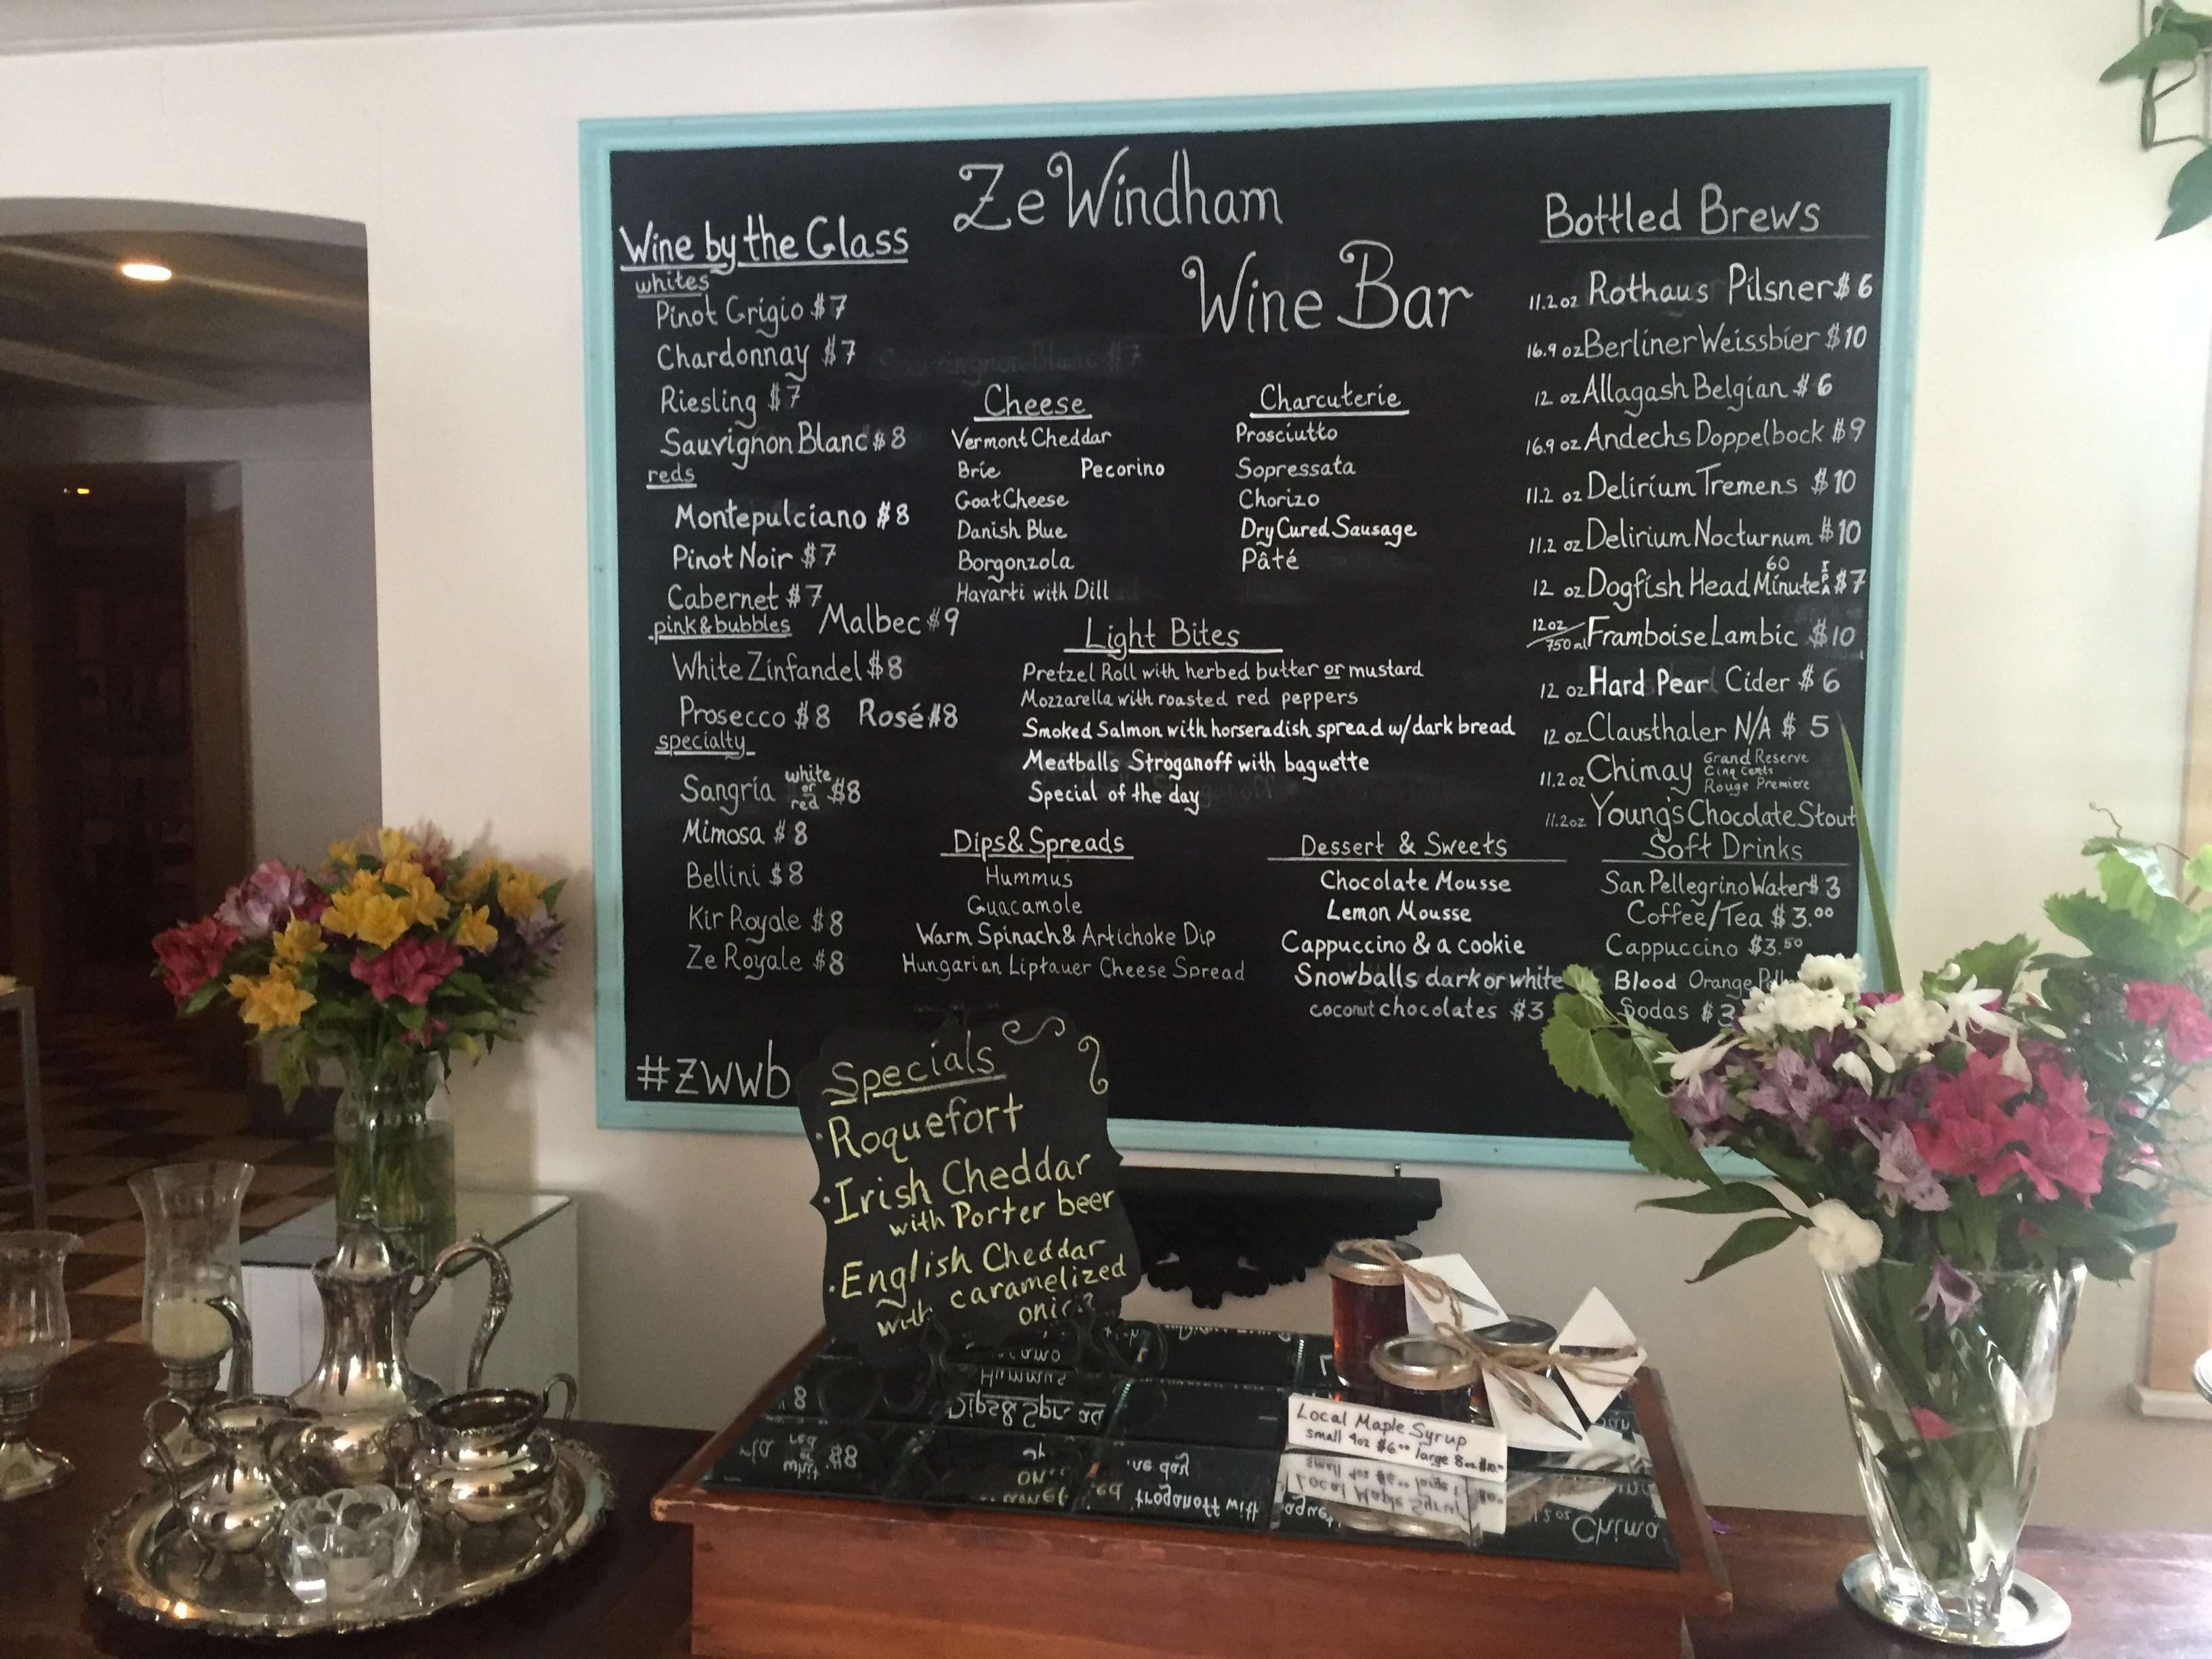 Ze Windham
Wine Bar
Wine by the Glass
whites
Pinot Grigio $7
Chardonnay $7
Riesling $7
Sauvignon Blanc $8
reds
Montepulciano $8
Pinot Noir $7
Cabernet $7
Malbec $9
pink & bubbles
White Zinfandel $8
Prosecco $8 Rosé $8
specialty
Sangria white or red $8
Mimosa $8
Bellini $8
Kir Royale $8
Ze Royale $8
#zwwb
Sauvingnon Blanc $7
Cheese
Vermont Cheddar
Brie Pecorino
Goat Cheese
Danish Blue
Borgonzola
Havarti with Dill
Charcuterie
Prosciutto
Sopressata
Chorizo
Dry Cured Sausage
Pâté
Light Bites
Pretzel Roll with herbed butter or mustard
Mozzarella with roasted red peppers
Smoked Salmon with horseradish spread w/dark bread
Meatballs Stroganoff with baguette
Special of the day
Dips & Spreads
Hummus
Guacamole
Warm Spinach & Artichoke Dip
Hungarian Liptauer Cheese Spread
Dessert & Sweets
Chocolate Mousse
Lemon Mousse
Cappuccino & a cookie
Snowballs dark or white
coconut chocolates $3
Bottled Brews
11.2 oz Rothaus Pilsner $6
16.9 oz Berliner Weissbier $10
12 oz Allagash Belgian $6
16.9 oz Andechs Doppelbock $9
11.2 oz Delirium Tremens $10
11.2 oz Delirium Nocturnum $10
12 oz Dogfish Head 60 Minute IPA $7
12oz/750ml Framboise Lambic $10
12 oz Hard Pear Cider $6
12 oz Clausthaler N/A $5
11.2 oz Chimay Grand Reserve
Cinq Cents
Rouge Premiere
11.2 oz Young's Chocolate Stout
Soft Drinks
San Pellegrino Water $3
Coffee/Tea $3.00
Cappuccino $3.50
Blood Orange
Sodas $3
Specials
·Roquefort
·Irish Cheddar
with Porter beer
·English Cheddar
with caramelized
Local Maple Syrup
small 4oz $6.00 large 8oz